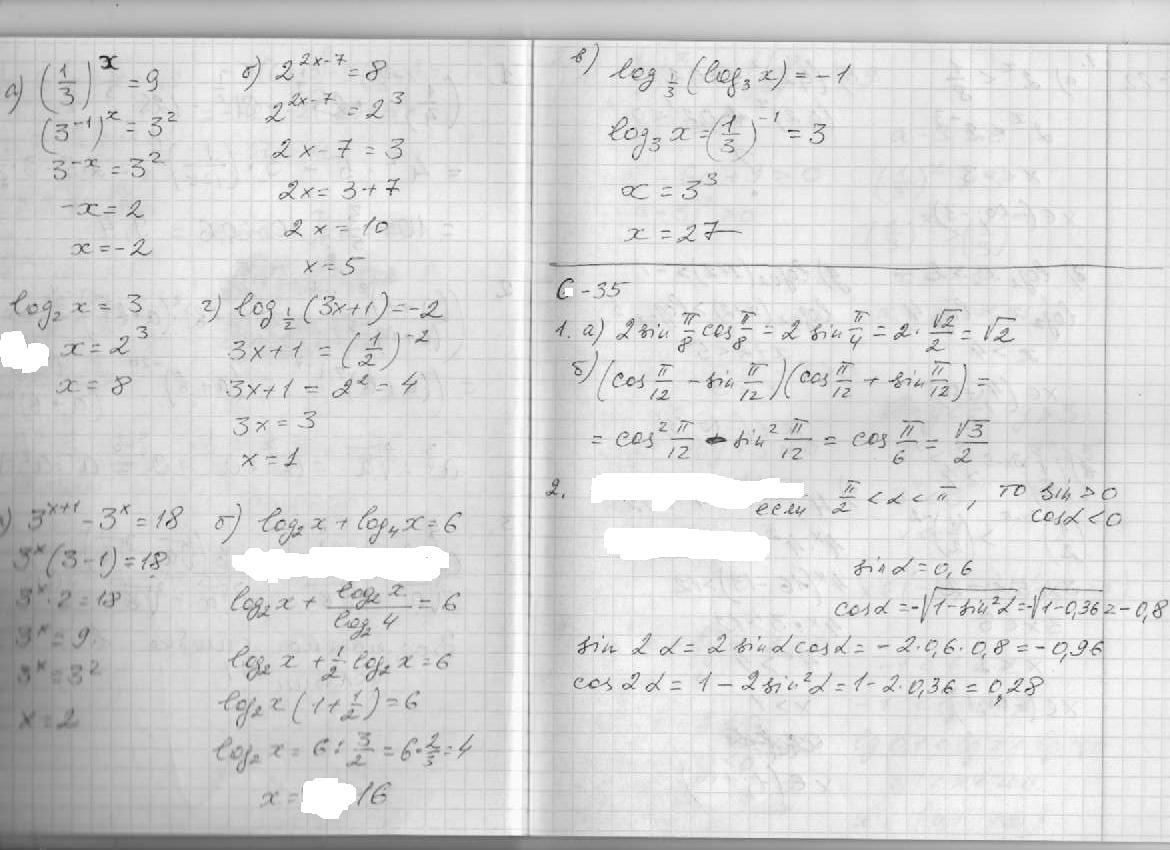 а) (1/3)^x = 9
(3^-1)^x = 3^2
3^-x = 3^2
-x = 2
x = -2
б) 2^(2x-7) = 8
2^(2x-7) = 2^3
2x - 7 = 3
2x = 3 + 7
2x = 10
x = 5
log₂ x = 3
x = 2^3
x = 8
г) log_(1/2) (3x+1) = -2
3x+1 = (1/2)^-2
3x+1 = 2^2 = 4
3x = 3
x = 1
3^(x+1) - 3^x = 18
3^x (3-1) = 18
3^x · 2 = 18
3^x = 9
3^x = 3^2
x = 2
б) log₂x + log₄x = 6
log₂x + log₂x / log₂4 = 6
log₂x + 1/2 log₂x = 6
log₂x (1 + 1/2) = 6
log₂x = 6 : 3/2 = 6 · 2/3 = 4
x = 16
в) log_(1/3) (log₃ x) = -1
log₃ x = (1/3)^-1 = 3
x = 3^3
x = 27
С-35
1. а) 2 sin π/8 cos π/8 = 2 sin π/4 = 2 · √2/2 = √2
б) (cos π/12 - sin π/12)(cos π/12 + sin π/12) =
= cos² π/12 - sin² π/12 = cos π/6 = √3/2
2. если π/2 < α < π, то sin > 0
cosα < 0
sin α = 0,6
cosα = -√(1-sin²α) = -√(1-0,36) = -0,8
sin 2α = 2 sinα cosα = -2·0,6·0,8 = -0,96
cos 2α = 1 - 2sin²α = 1 - 2·0,36 = 0,28